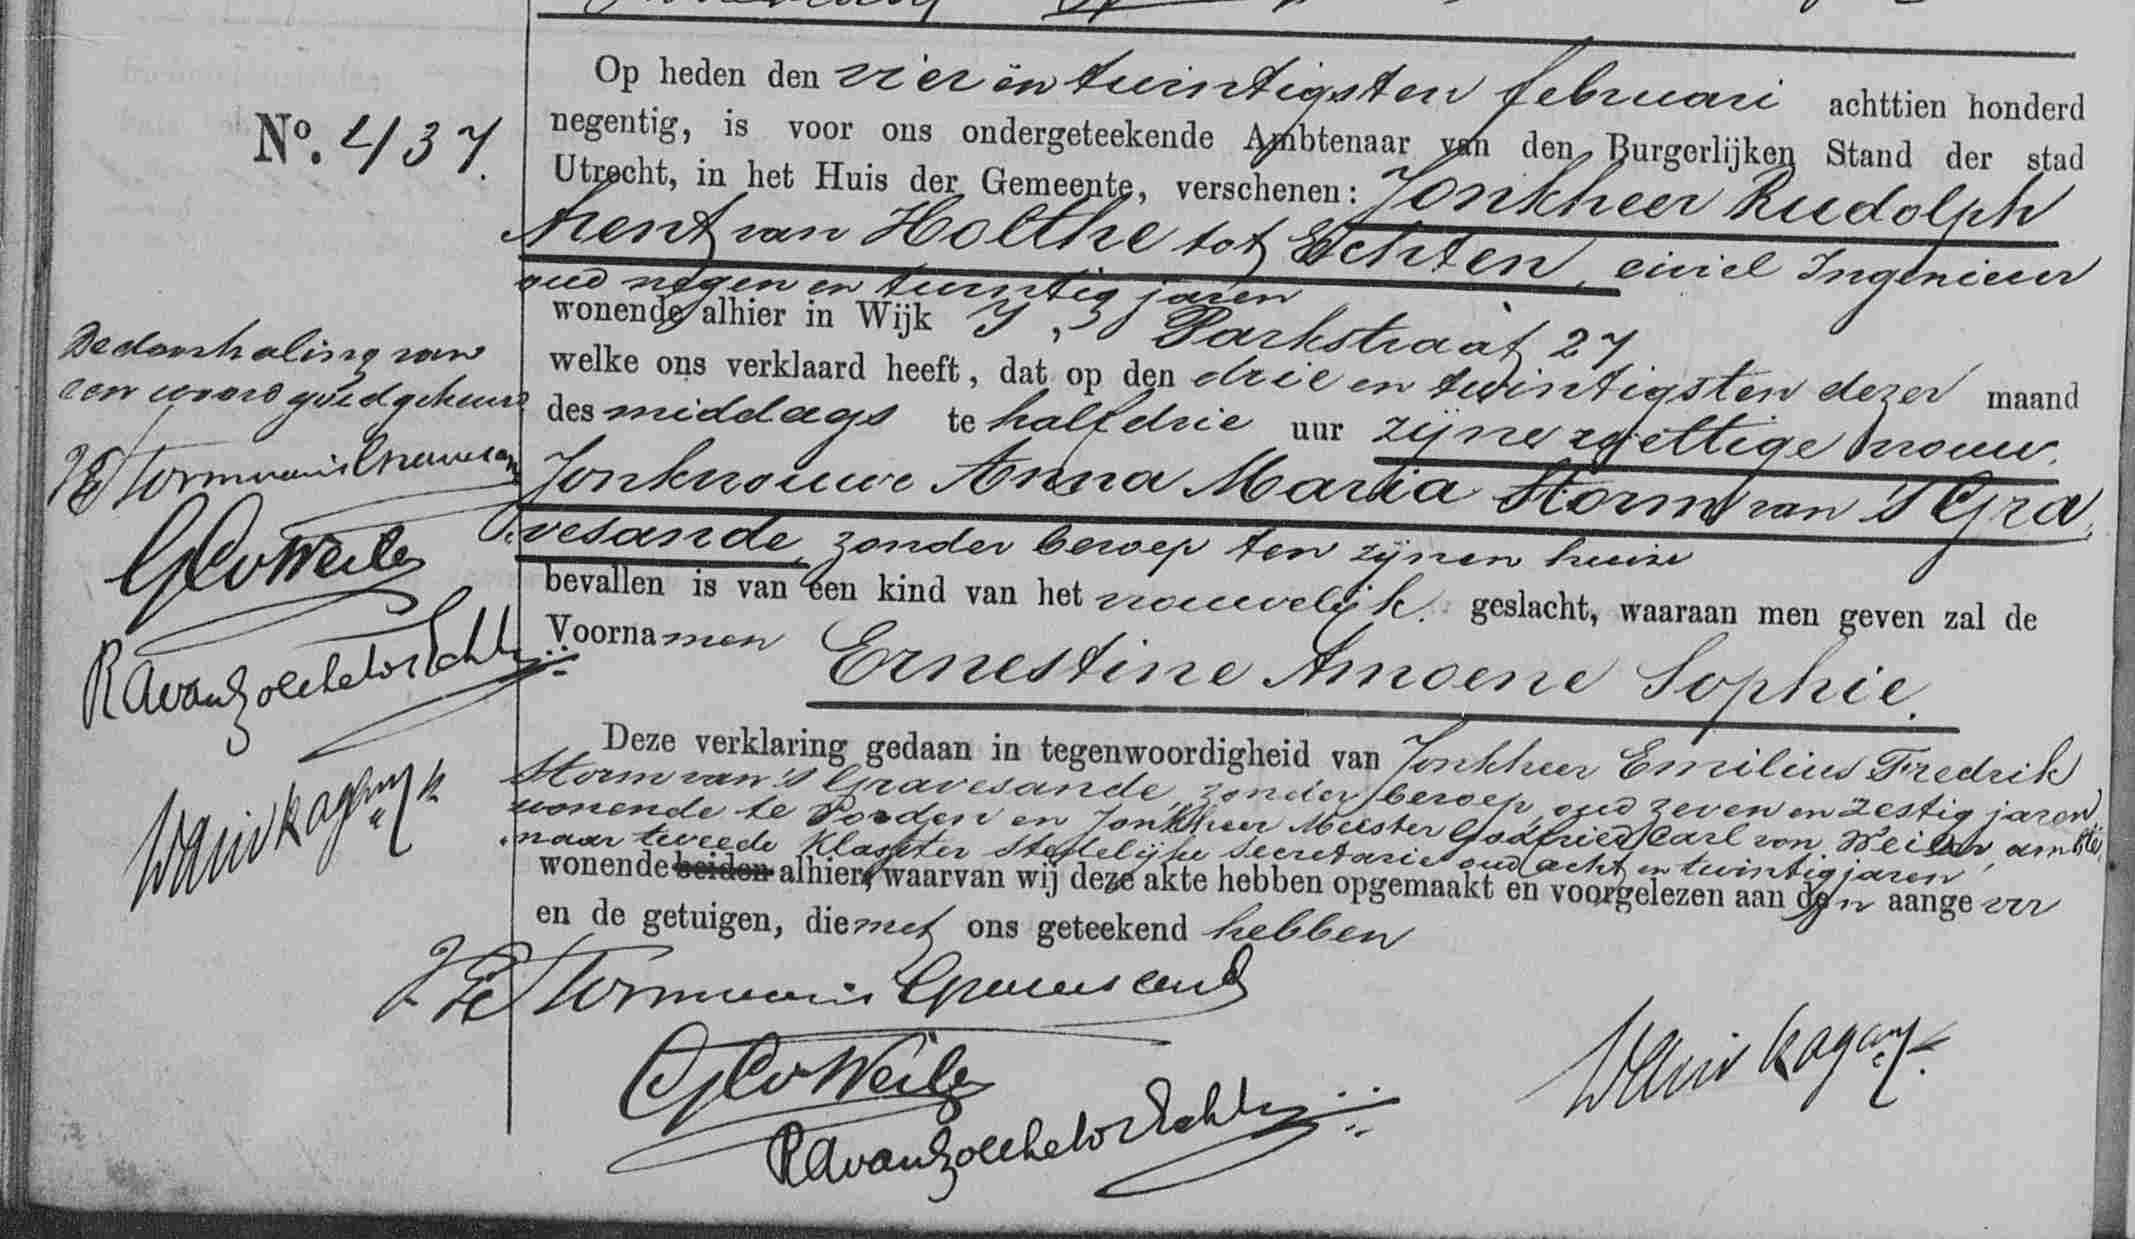 No. 437.
Op heden den vier en twintigsten februari achttien honderd
negentig, is voor ons ondergeteekende Ambtenaar van den Burgerlijken Stand der stad
Utrecht, in het Huis der Gemeente, verschenen: Jonkheer Rudolph
Arent van Holthe tot Echten, civiel Ingenieur
oud negen en twintig jaren
wonende alhier in Wijk I, Parkstraat 27
welke ons verklaard heeft, dat op den drie en twintigsten dezer maand
des middags te half drie uur zijne wettige vrouw
Jonkvrouwe Anna Maria Storm van 's Gra
vesande, zonder beroep ten zijnen huize
bevallen is van een kind van het vrouwelijk geslacht, waaraan men geven zal de
Voornamen Ernestine Amoene Sophie.
Deze verklaring gedaan in tegenwoordigheid van Jonkheer Emilius Fredrik
Storm van 's Gravesande, zonder beroep, oud zeven en zestig jaren,
wonende te en Jonkheer Meester Godfried Carl von Weiler, ambte
naar tweede Klasse ter Stedelijke Secretarie oud acht en twintig jaren
wonende beiden alhier, waarvan wij deze akte hebben opgemaakt en voorgelezen aan den aangever
en de getuigen, die met ons geteekend hebben
De doorhaling van
een woord goedgekeurd
Storm van 's Gravesande
GCv Weiler
RA van Holthe tot Echten
Storm van 's Gravesande
GCv Weiler
RA van Holthe tot Echten